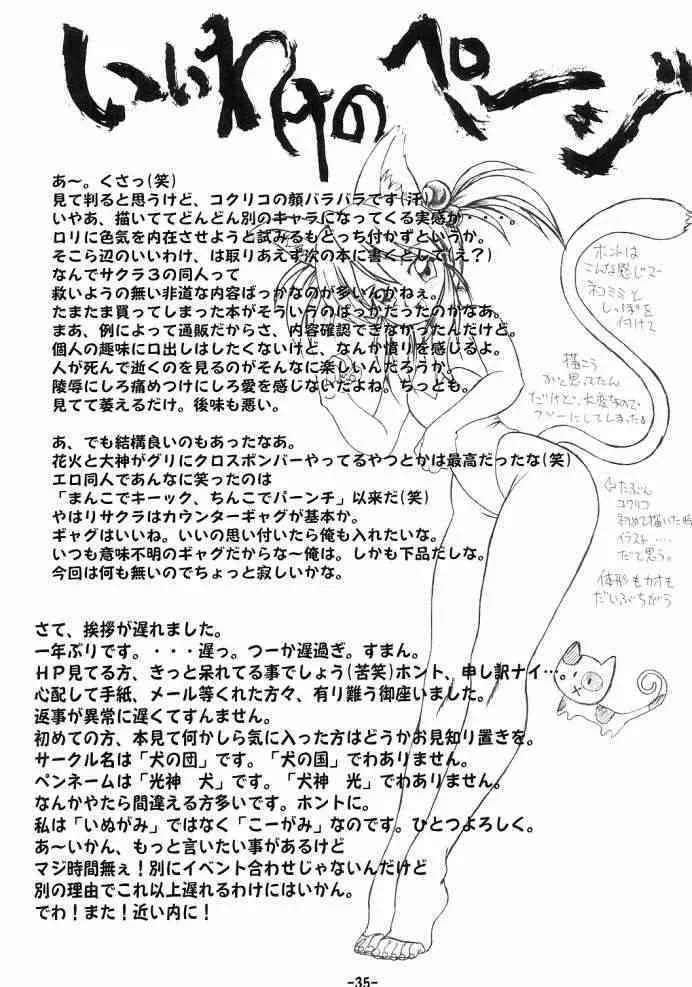 いいわけのページ
あ～。くさっ(笑)
見て判ると思うけど、コクリコの顔バラバラです(汗)
いやあ、描いててどんどん別のキャラになってくる実感が・・・。
そこら辺のいいわけ、は取りあえず次の本に書くとして(え?)
なんでサクラ３の同人って
救いようの無い非道な内容ばっかなのが多いんかねぇ。
たまたま買ってしまった本がそういうのばっかだったのかなあ。
まあ、例によって通販だからさ、内容確認できなかったんだけど。
個人の趣味に口出しはしたくないけど、なんか憤りを感じるよ。
人が死んで逝くのを見るのがそんなに楽しいんだろうか。
陵辱にしろ痛めつけにしろ愛を感じないだよね。ちっとも。
見てて萎えるだけ。後味も悪い。
あ、でも結構良いのもあったなあ。
花火と大神がグリにクロスボンバーやってるやつとかは最高だったな(笑)
エロ同人であんなに笑ったのは
「まんこでキーック、ちんこでパーンチ」以来だ(笑)
やはりサクラはカウンターギャグが基本か。
ギャグはいいね。いいの思い付いたら俺も入れたいな。
いつも意味不明のギャグだからな～俺は。しかも下品だしな。
今回は何も無いのでちょっと寂しいかな。
さて、挨拶が遅れました。
一年ぶりです。・・・遅っ。つーか遅過ぎ。すまん。
ＨＰ見てる方、きっと呆れてる事でしょう(苦笑)ホント、申し訳ナイ…。
心配して手紙、メール等くれた方々、有り難う御座いました。
返事が異常に遅くてすんません。
初めての方、本見て何かしら気に入った方はどうかお見知り置きを。
サークル名は「犬の団」です。「犬の国」でわありません。
ペンネームは「光神　犬」です。「犬神　光」でわありません。
なんかやたら間違える方多いです。ホントに。
私は「いぬがみ」ではなく「こーがみ」なのです。ひとつよろしく。
あ～いかん、もっと言いたい事があるけど
マジ時間無ぇ！別にイベント合わせじゃないんだけど
別の理由でこれ以上遅れるわけにはいかん。
でわ！また！近い内に！
-35-